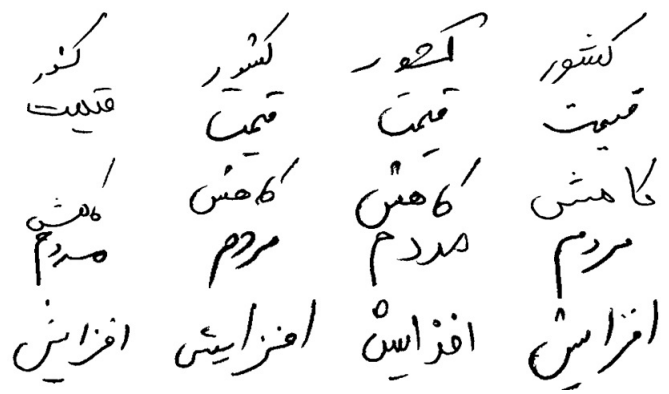 کشور کشور کشور کشور
قیمت قیمت قیمت قیمت
کاهش کاهش کاهش کاهش
مردم مردم مردم مردم
افزایش افزایش افزایش افزایش